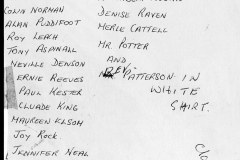 COLIN NORMAN
ALAN PUDDIFOOT
ROY LEACH
TONY ASPINALL
NEVILLE DENSON
ERNIE REEVES
PAUL KESTER
CLUADE KING
MAUREEN ELSOM
JOY ROCK.
JENNIFER NEAL
DENISE RAVEN
MERLE CATTELL
MR. POTTER
AND
REV. PATTERSON IN
WHITE
SHIRT.